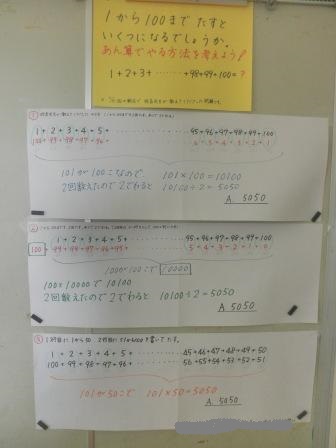 1から100まで たすと
いくつになるでしょうか。
あん算でやる方法を考えよう!
1+2+3+………+98+99+100=?
①
1+2+3+4+5+………95+96+97+98+99+100
100+99+98+97+96+………6+5+4+3+2+1
101が100こなので、 101×100=10100
2回数えたので2でわると 10100÷2=5050
A. 5050
②
100
1+2+3+4+5+………95+96+97+98+99+100
99+98+97+96+95+………5+4+3+2+1+0
100が100こで 10000
100+10000で 10100
2回数えたので2でわると 10100÷2=5050
A. 5050
③ 1行目に1から50、2行目に51から100を書いてたす。
1+2+3+4+5+………45+46+47+48+49+50
100+99+98+97+96+………56+55+54+53+52+51
101が50こで 101×50=5050
A. 5050